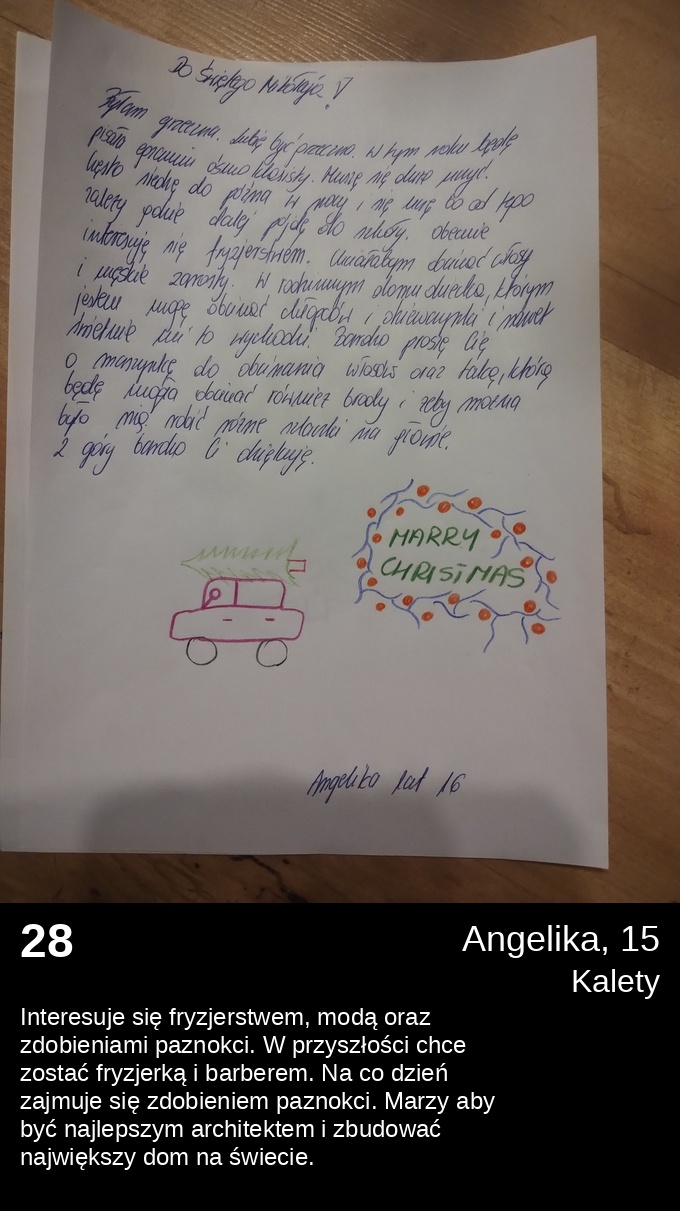 Do Świętego Mikołaja!
Byłam grzeczna. Lubię być grzeczna. W tym roku będę
pisała egzamin ósmo klasisty. Muszę się dużo uczyć.
Często siedzę do późna w nocy i się uczę bo od tego
zależy gdzie dalej pójdę do szkoły. Obecnie
interesuję się fryzjerstwem. Chciałabym obcinać włosy
i męskie zarosty. W rodzinnym domu dziecka, którym
jestem mogę obcinać chłopców i dziewczynki i nawet
świetnie mi to wychodzi. Bardzo proszę Cię
o maszynkę do obcinania włosów oraz taką, którą
będę mogła obcinać również brody i żeby można
było nią robić różne szlaczki na głowie.
Z góry bardzo Ci dziękuję.
MARRY
CHRISTMAS
Angelika lat 16
28
Angelika, 15
Kalety
Interesuje się fryzjerstwem, modą oraz
zdobieniami paznokci. W przyszłości chce
zostać fryzjerką i barberem. Na co dzień
zajmuje się zdobieniem paznokci. Marzy aby
być najlepszym architektem i zbudować
największy dom na świecie.